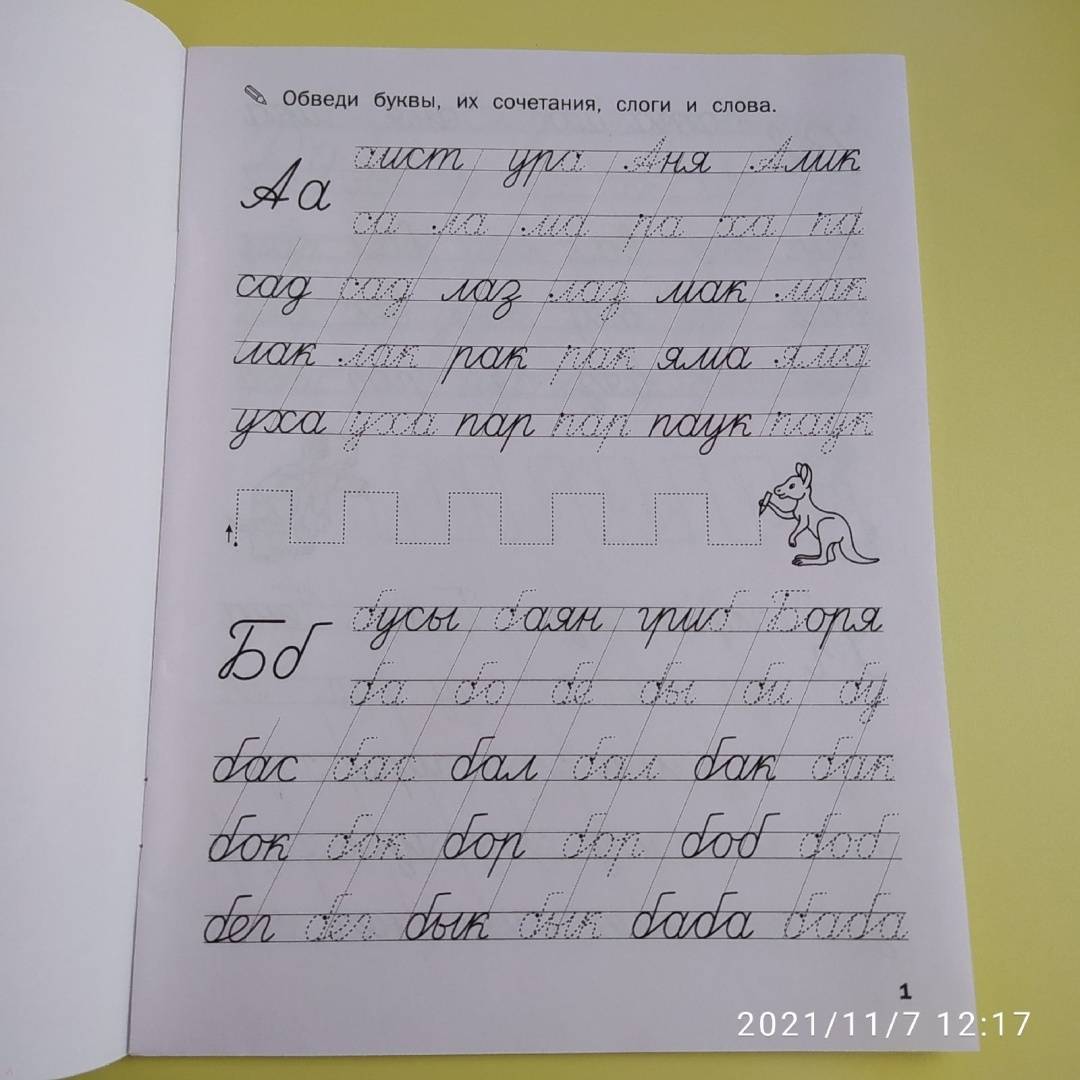 Обведи буквы, их сочетания, слоги и слова.
Аа
аист ура Аня Алик
са ла ма ра ха па
сад сад лаз лаз мак мак
лак лак рак рак яма яма
уха уха пар пар паук паук
Бб
бусы баян гриб Боря
ба бо бе бы би бу
бас бас бал бал бак бак
бок бок бор бор боб боб
бег бег бык бык баба баба
1
2021/11/7 12:17